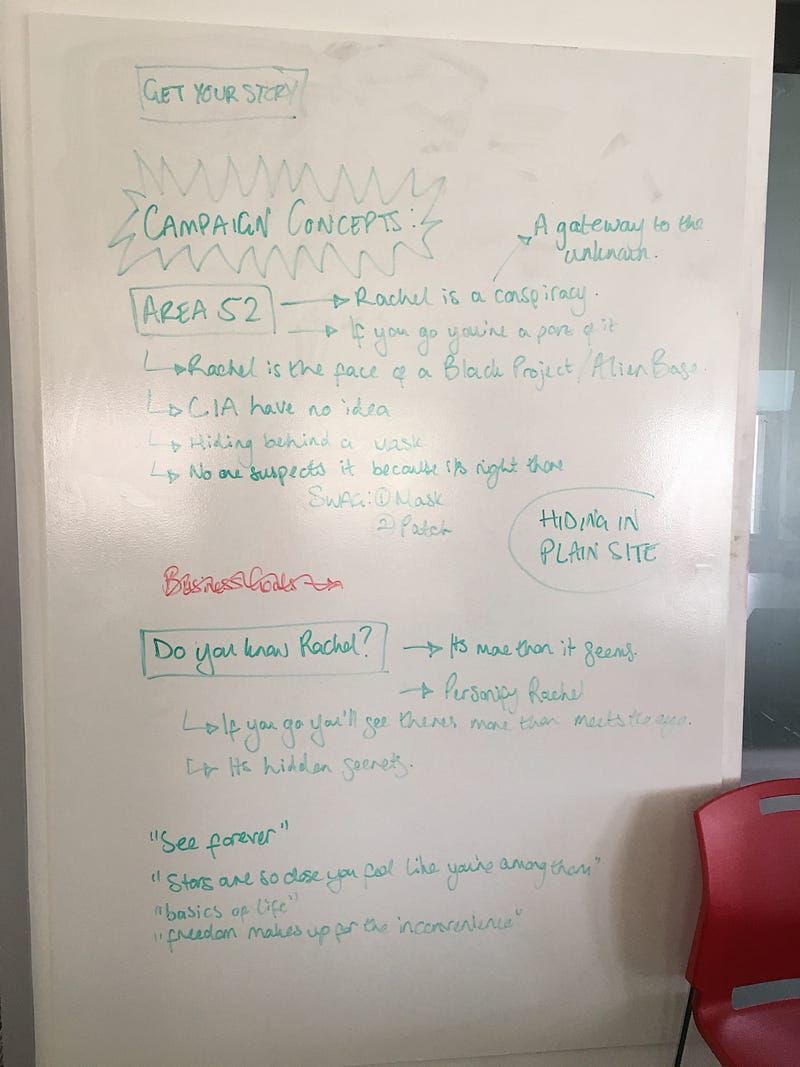 GET YOUR STORY
CAMPAIGN CONCEPTS:
A gateway to the
AREA 52
Rachel is a conspiracy.
If you go you're a part of it
Rachel is the face of a Black Project/Alien Base.
CIA have no idea
Hiding behind a mask
No one suspects it because it's right there
SWAG: ① Mask
② Patch
HIDING IN
PLAIN SITE
Business Goals
Do you know Rachel?
Its more than it seems.
Personify Rachel
If you go you'll see theres more than meets the eye.
Its hidden secrets.
"See forever"
"Stars are so close you feel like you're among them"
"basics of life"
"freedom makes up for the inconvenience"